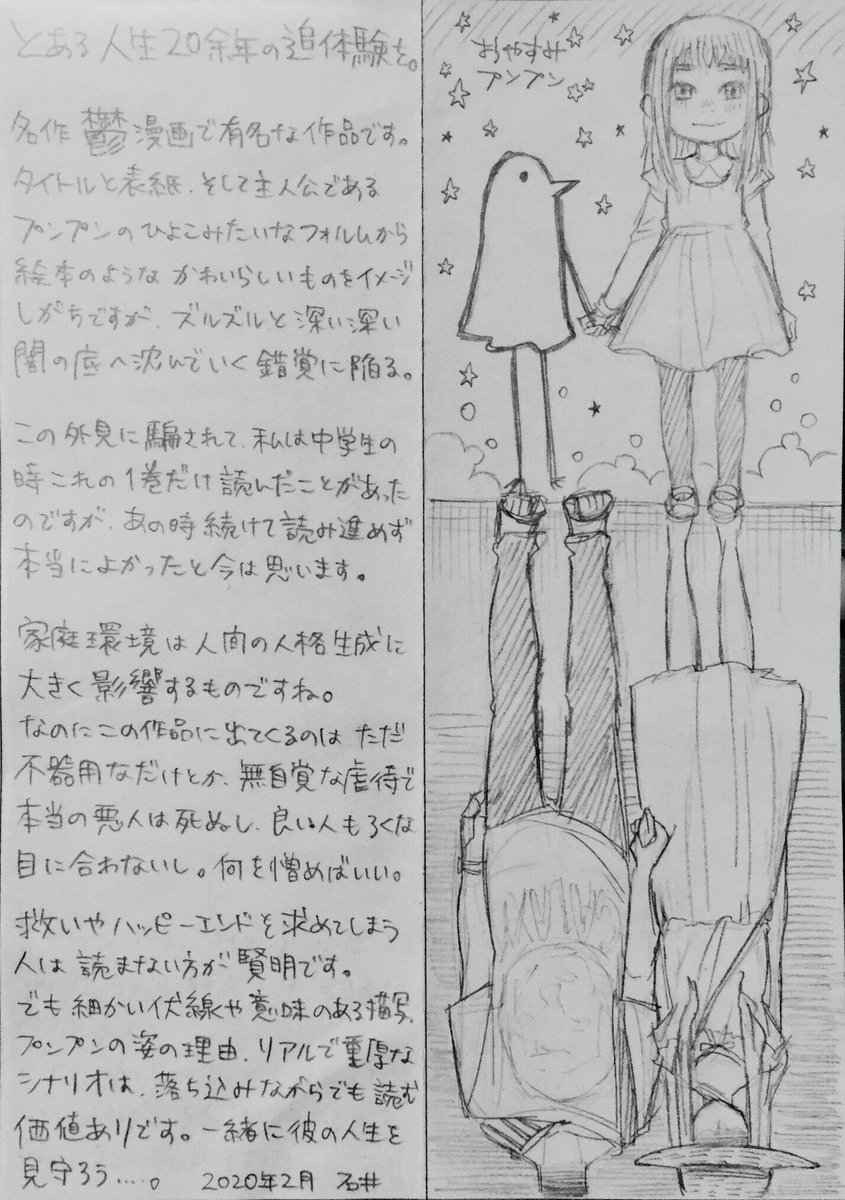 とある人生20余年の追体験を。
名作 鬱 漫画で有名な作品です。
タイトルと表紙、そして主人公である
プンプンのひよこみたいなフォルムから
絵本のようなかわいらしいものをイメージ
しがちですが、ズルズルと深い深い
闇の底へ沈んでいく錯覚に陥る。
この外見に騙されて、私は中学生の
時これの1巻だけ読んだことがあった
のですが、あの時続けて読み進めず
本当によかったと今は思います。
家庭環境は人間の人格生成に
大きく影響するものですね。
なのにこの作品に出てくるのは ただ
不器用なだけとか、無自覚な虐待で
本当の悪人は死ぬし、良い人もろくな
目に合わないし。何を憎めばいい。
救いやハッピーエンドを求めてしまう
人は読まない方が賢明です。
でも細かい伏線や意味のある描写、
プンプンの姿の理由、リアルで重厚な
シナリオは、落ち込みながらでも読む
価値ありです。一緒に彼の人生を
見守ろう…。 2020年2月 石井
おやすみ
プンプン